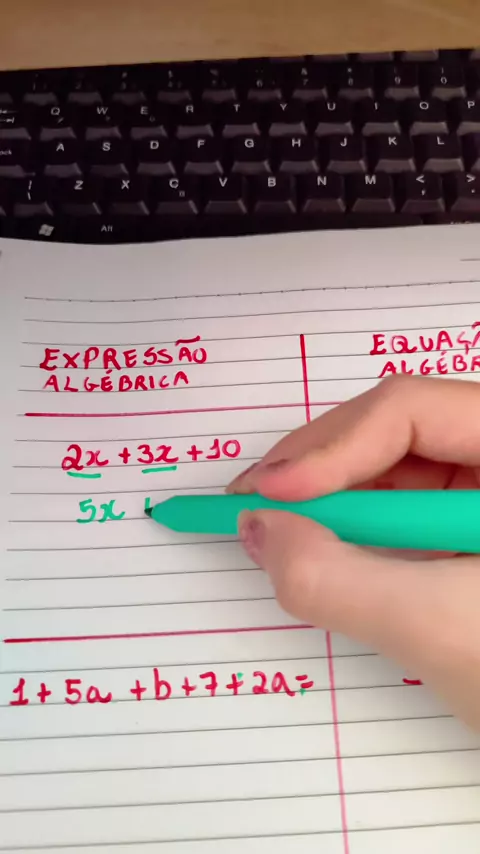 Q W E R T Y U I O P
A S D F G H J K L
Z X C V B N M < >
Alt
EXPRESSÃO
ALGÉBRICA
EQUAÇÃ
ALGÉBR
2x + 3x + 10
5x
1 + 5a + b + 7 + 2a =